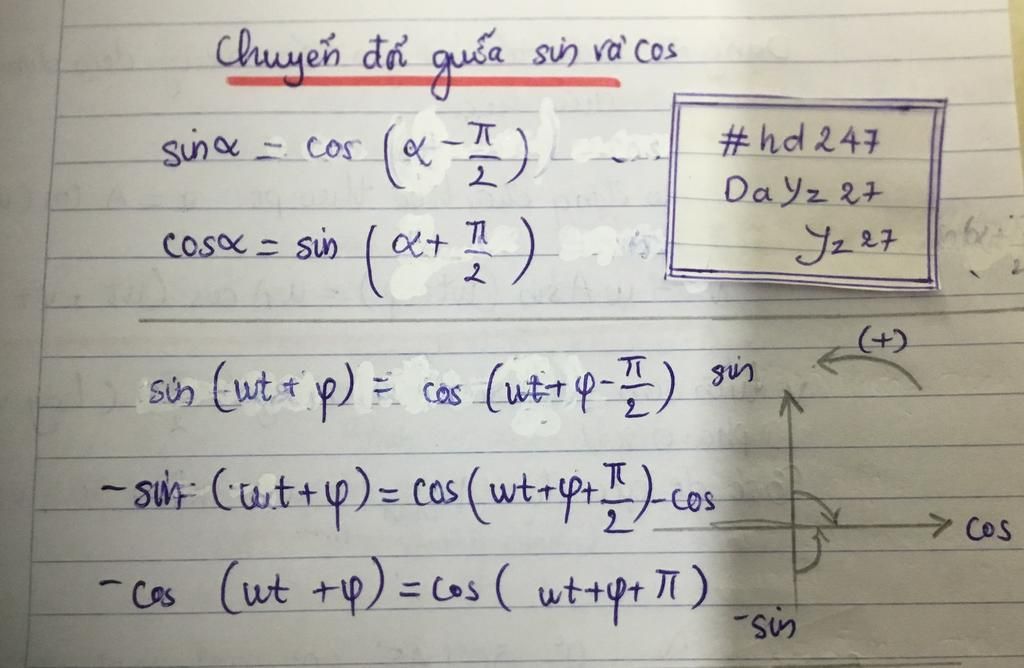 Chuyển đổi giữa sin và cos
sinα = cos (α - π/2)
cosα = sin (α + π/2)
#hd247
DaYz27
Yz27
sin (ωt + φ) = cos (ωt + φ - π/2)
-sin (ωt + φ) = cos (ωt + φ + π/2)
-cos (ωt + φ) = cos (ωt + φ + π)
(+)
sin
-cos
cos
-sin